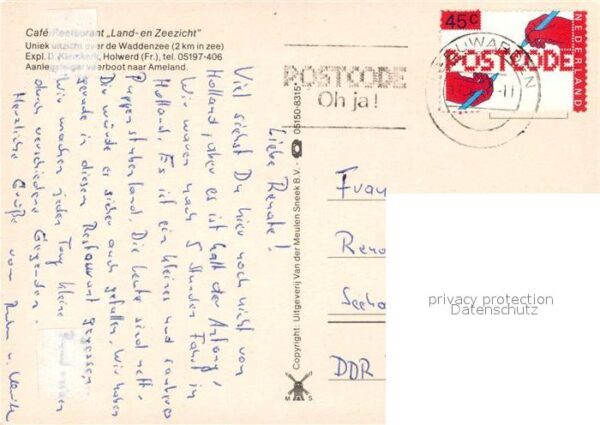 Café-Restaurant „Land- en Zeezicht"
Uniek uitzicht over de Waddenzee (2 km in zee)
Expl. Holwerd (Fr.), tel. 05197-406
Aanlegsteiger veerboot naar Ameland.
45c
NEDERLAND
POSTCODE
POSTCODE
Oh ja!
Liebe Renate!
Viel siehst Du hier noch nicht von
Holland, aber es ist halt der Anfang,
Wir waren nach 5 Stunden Fahrt in
Holland. Es ist ein kleines und sauberes
Puppenstubenland. Die Leute sind nett.
Du würde es sicher auch gefallen. Wir haben
gerade in diesem Restaurant gegessen.
Wir machen jeden Tag kleine
durch verschiedene Gegenden.
Herzliche Grüße von
Copyright: Uitgeverij Van der Meulen Sneek B.V. - 05150-8315*
M S
Frau
Rena
Seeho
DDR
privacy protection
Datenschutz